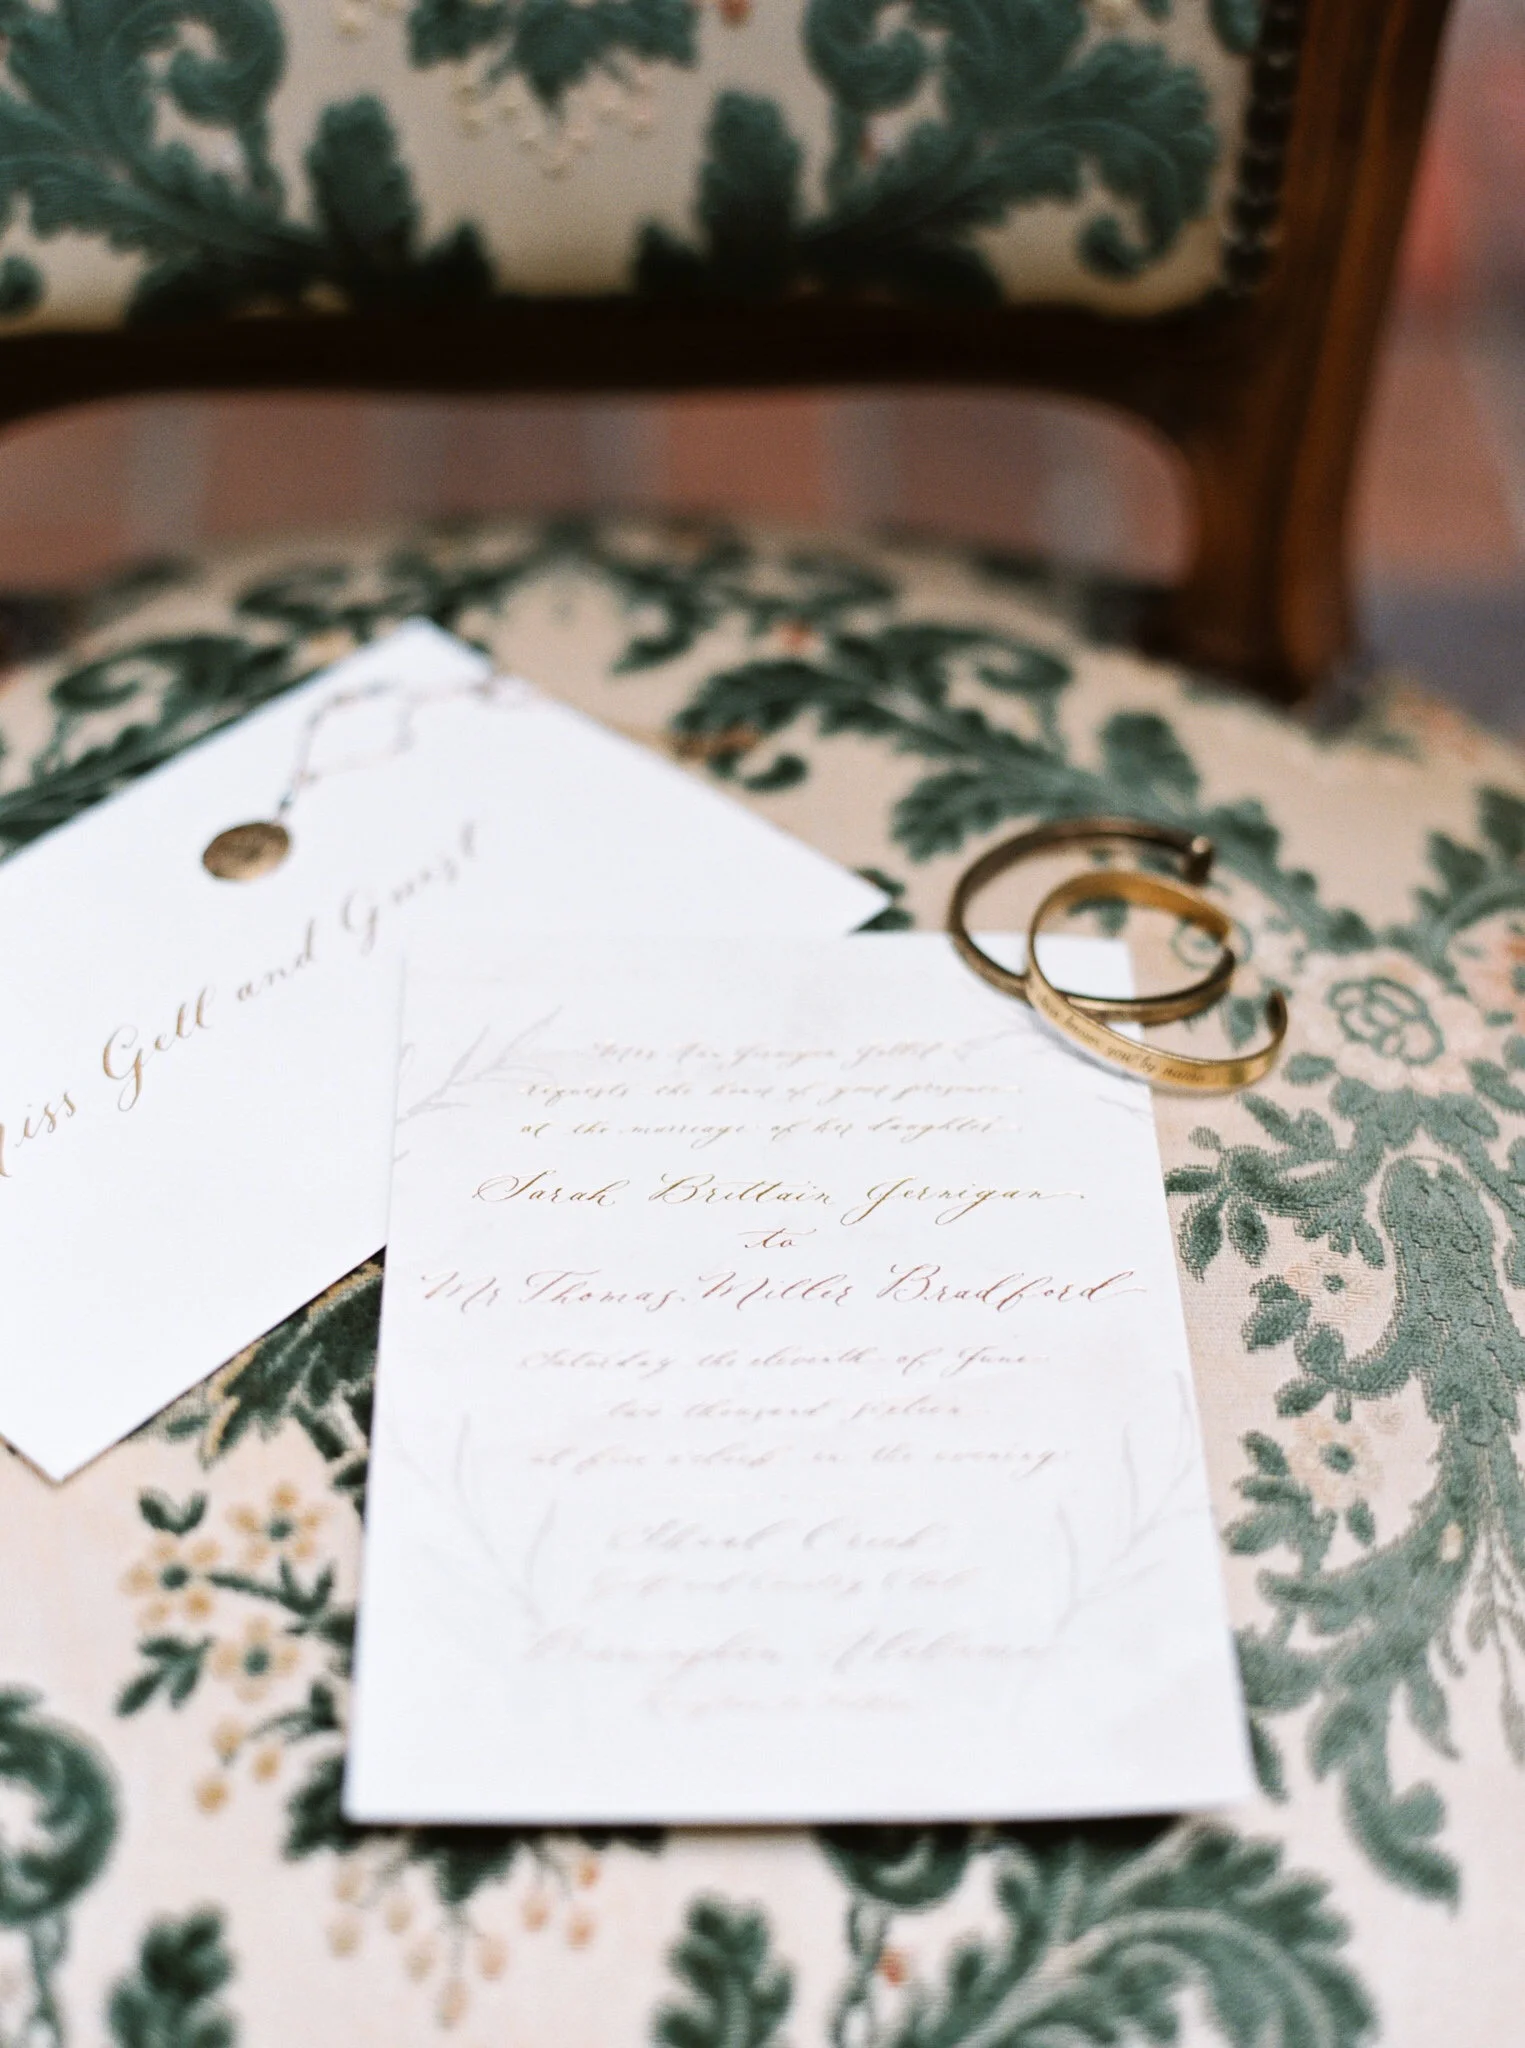 Miss Gell and Guest
requests the honor of your presence
at the marriage of her daughter
Sarah Brittain Jernigan
to
Mr Thomas Miller Bradford
Saturday the eleventh of June
two thousand sixteen
at five o'clock in the evening
Shoal Creek
Golf and Country Club
Birmingham Alabama
known you by name